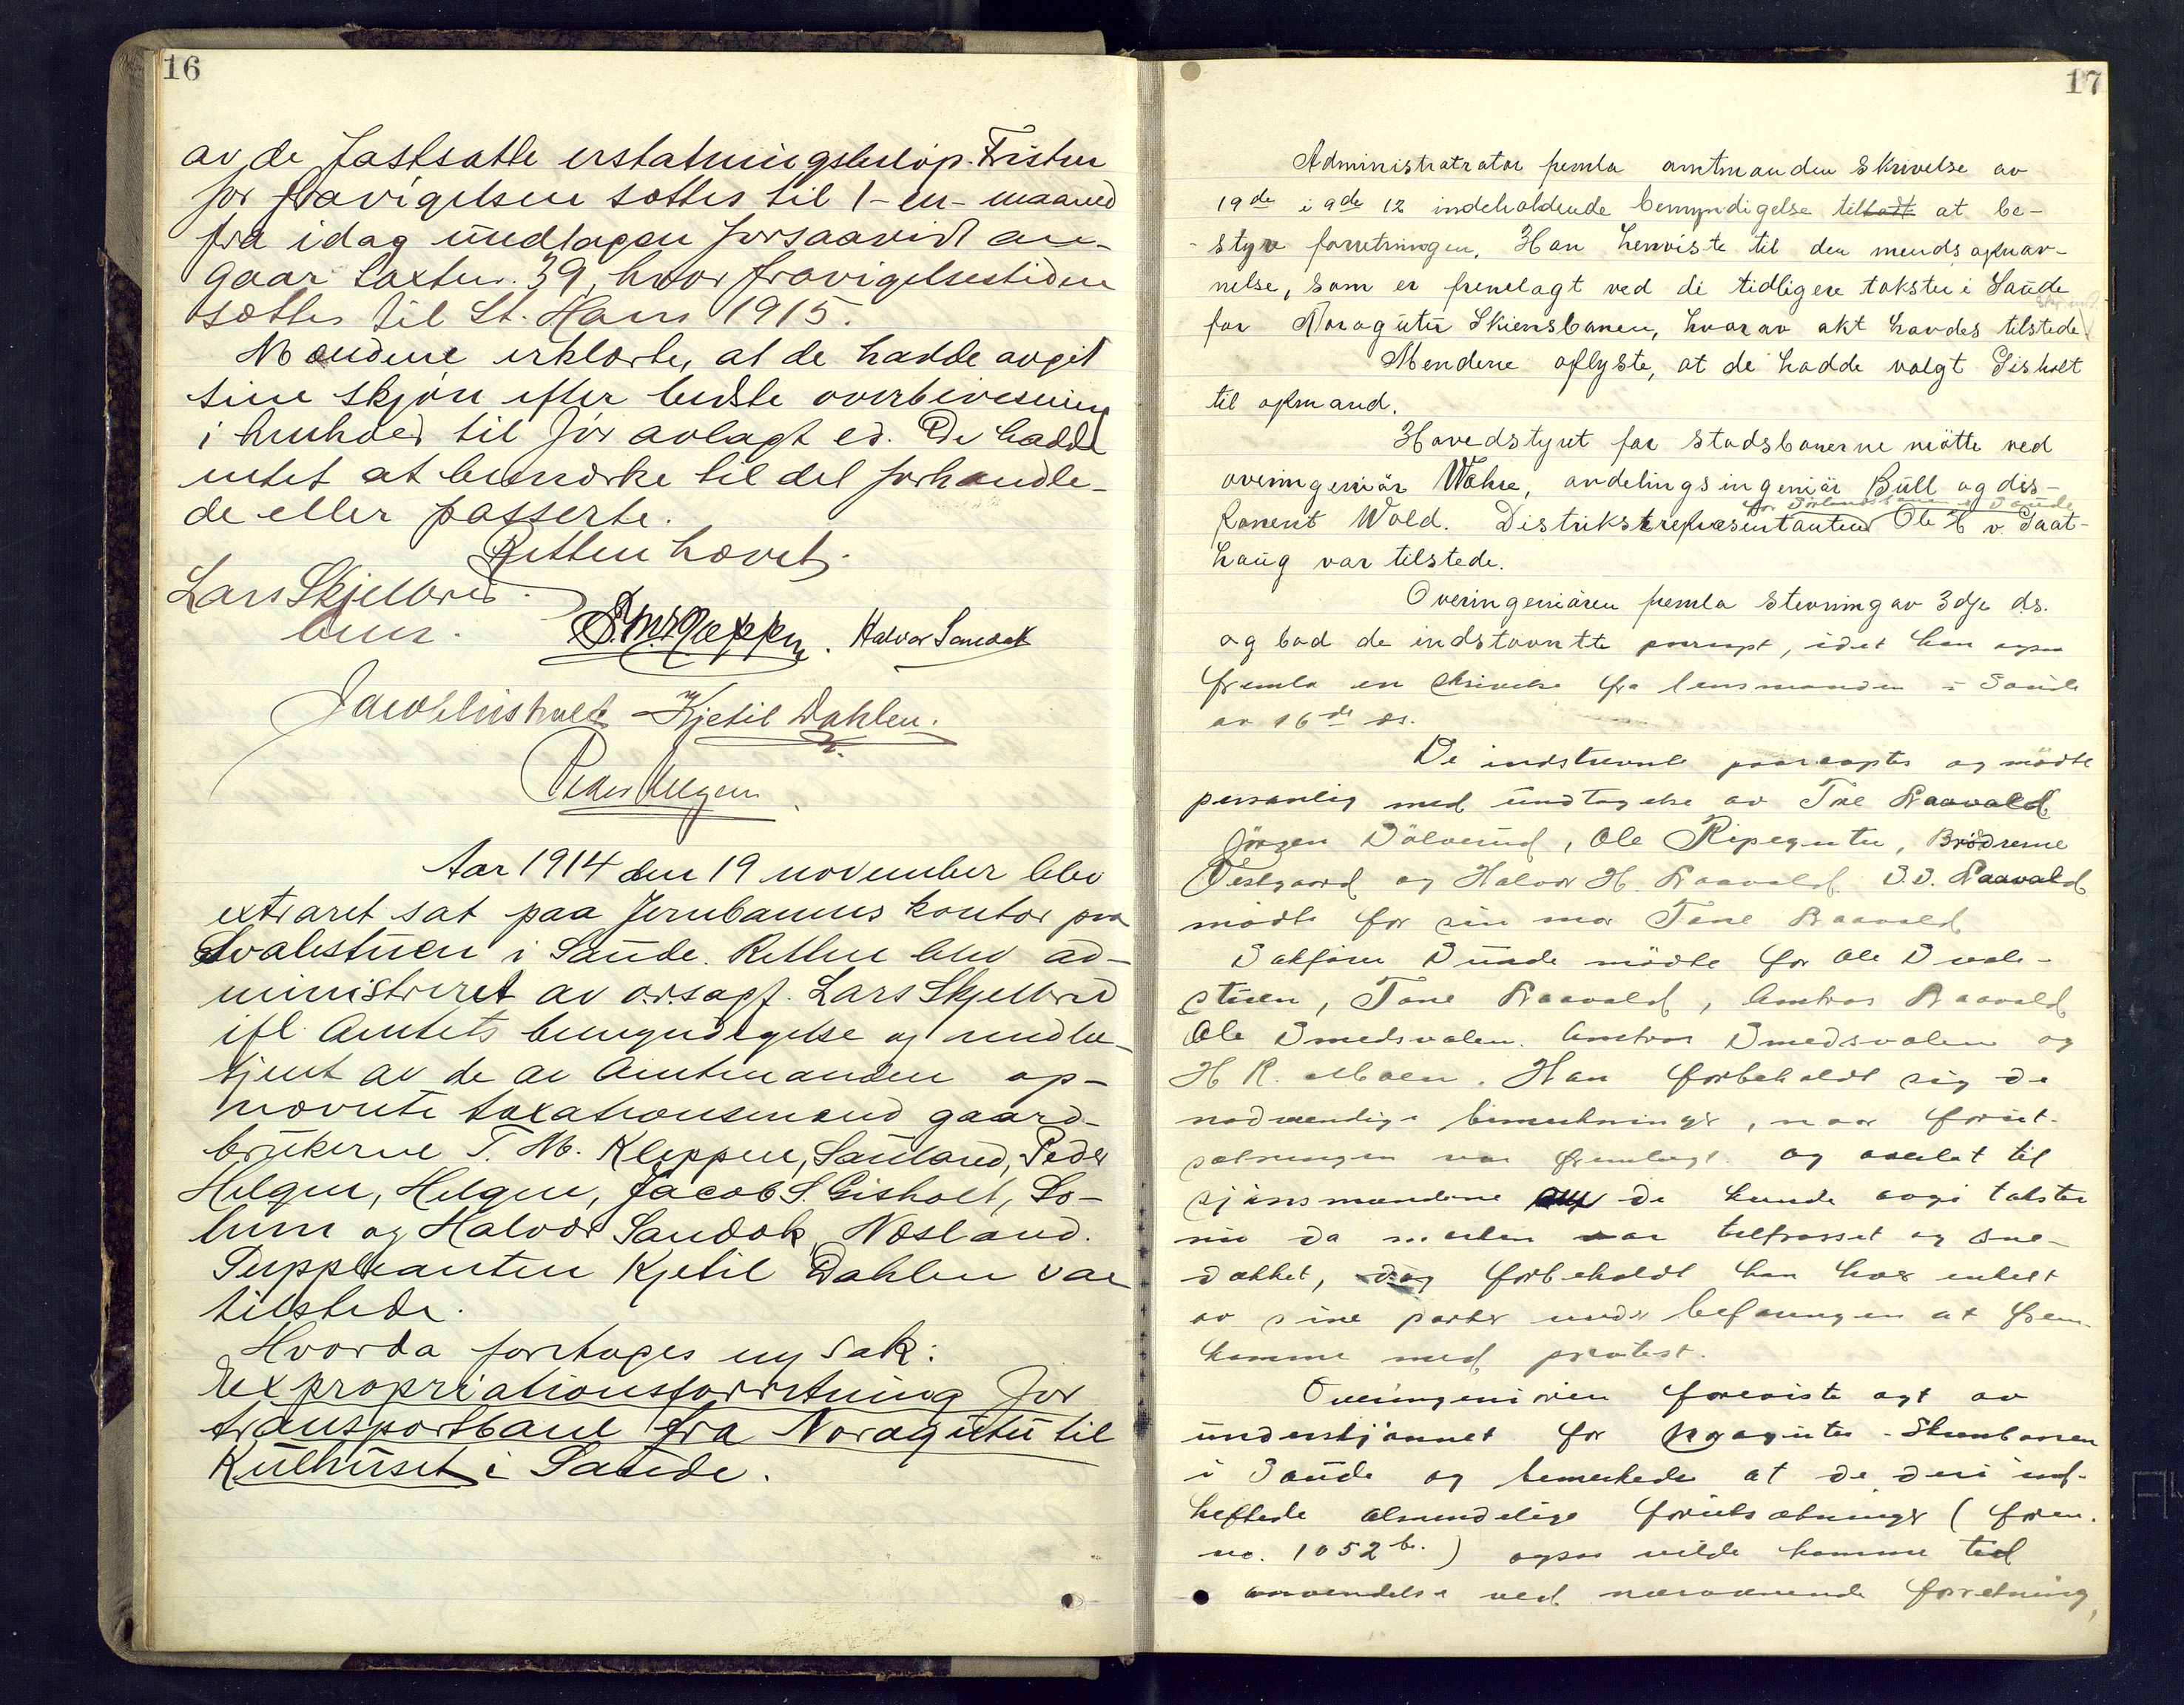 16
av de fastsatte erstatningsbeløp. Fristen
for fravigelsen sættes til 1 - en - maaned
fra idag undtagen forsaavidt an-
gaar laxtnr. 39, hvor fravigelsestiden
sættes til St. Hans 1915.
Mændene erklærte, at de hadde avgit
sine skjøn efter bedste overbevisning
i henhold til før avlagt ed. De hadde
intet at bemærke til det forhandle-
de eller passerte.
Retten hævet.
Lars Skjelbred
Halvor Sandok
Kjetil Dahlen.
Peder Helgen
Aar 1914 den 19 november blev
extraret sat paa Jernbanens kontor paa
Svalestuen i Saude. Retten blev ad-
ministreret av o.r.sagf. Lars Skjelbred
ifl. Amtets bemyndigelse og meddom-
tjent av de av Amtmanden op-
nævnte taxationsmænd gaard-
brukerne T. M. Kleppen, Sauland, Peder
Helgen, Helgen, Jacob S. Gisholt, So-
lum og Halvor Sandok, Næsland.
Suppleanten Kjetil Dahlen var
tilstede.
Hvorda foretoges ny sak:
Expropriationsforretning for
transportbane fra Noragutu til
Kulhuset i Saude.
17
Administratrator fremla amtmanden skrivelse av
19de i 9de 12 indeholdende bemyndigelse til at be-
styre forretningen. Han henviste til den mends opnæv-
nelse, som er fremlagt ved de tidligere takster i Saude
for Noragutu Skiensbanen, hvorav akt havdes tilstede.
Mendene oplyste, at de hadde valgt Gisholt
til opmand.
Hovedstyret for statsbanerne møtte ved
overingeniør Wahre, avdelingsingeniør Bull og dis-
ponent Wold. Distriksrepresentanten Ole H v. Saat-
for Sørlandsbanen i Saude
haug var tilstede.
Overingeniøren fremla stevning av 3dje ds.
og bad de indstævntte paaropt, idet han ogsaa
fremla en skrivelse fra lensmanden i Saude
av 16de ds.
De indstevnte paaroptes og mødte
personlig med undtagelse av Tone Raavald
Jørgen Sølverud, Ole Ripegutu, Brødrene
Vestgaard og Halvor H. Raavald. S.S. Raavald
mødte for sin mor Tone Raavald
Sakfører Sunde mødte for Ole Svale-
stuen, Tone Raavald, Amtros Raavald
Ole Smedsvalen. Amtros Smedsvalen og
H R. Moen. Han forbeholdt sig de
nødvendige bemerkninger, naar forut-
sætningen var fremlagt og overlat til
sjønsmændene de kunde avgi takster
nu da marken var tilfrosset og sne-
dækket, dog forbeholdt han hver enkelt
av sine parter under befaringen at frem-
komme med protest.
Overingeniøren foreviste agt av
underskjønnet for Noragutu - Skienbanen
i Saude og bemerkede at de deri ind-
heftede almindelige forutsætninger (foren.
no. 1052 b.) ogsaa vilde komme til
anvendelse ved nærværende forretning,